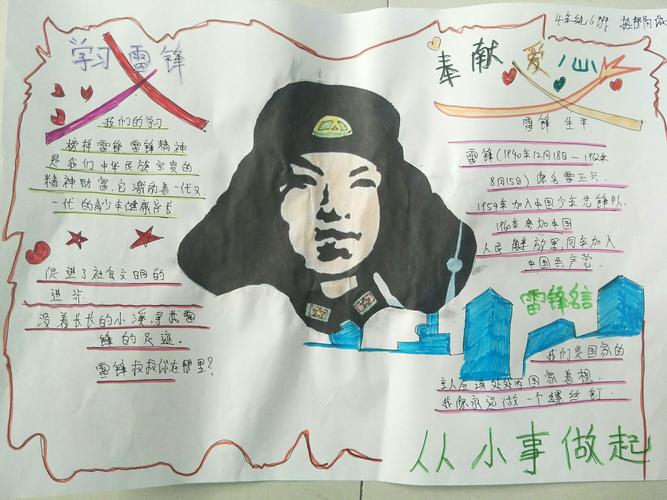 学习雷锋
我们的学习
榜样雷锋 雷锋精神
是我们中华民族宝贵的
精神财富,它激励着一代又
一代的青少年健康成长
促进了社会文明的
进步
沿着长长的小溪,寻找雷
锋的足迹.
雷锋叔叔你在哪里?
4年级6班
奉献爱心
雷锋生平
雷锋(1940年12月18日—1962年
8月15日)原名雷正兴.
1954年加入中国少年先锋队.
1960年参加中国
人民解放军,同年加入
中国共产党.
雷锋名言
我们是国家的
主人应该处处为国家着想.
我愿永远做一个螺丝钉
从小事做起